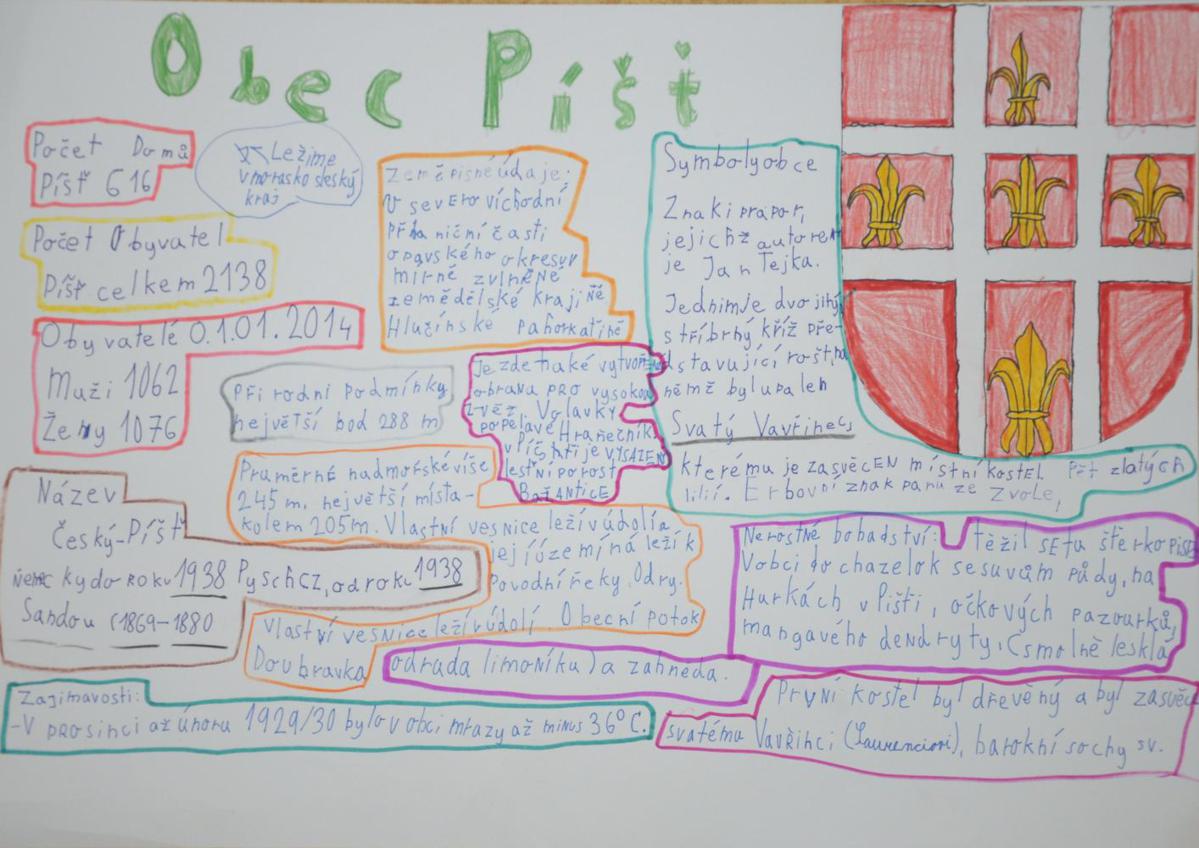 Obec Píšť
Počet Domů
Píšť 616
Ležíme
v morasko sleský
kraj
Počet Obyvatel
Píšť celkem 2138
Obyvatelé 0.1.01.2014
Muži 1062
Ženy 1076
Zeměpisné údaje:
V severo víchodní
při ční části
opavského okresu v
mírně zvlněné
zemědělské krajině
Hlučínské pahorkatině
Symboly obce
Znak i prapor,
jejichž autorem
je Jan Tejka.
Jedním je dvojihý
stříbrný kříž pře-
dstavující rošt na
němž byl upalen
Svatý Vavřinec
kterému je zasvěcen místní kostel. Pět zlatých
lilií. Erbovní znak panů ze Zvole,
Při rodní podmínky
největší bod 288 m
Je zde také vytvoř
obrana pro vysokou
zvěř. Volavky
popelavé Hraněčník
v Píšti je VYSAZEN
lestní porost
Bažantice
Název
Český-Píšť
německy do roku 1938 Pyschcz, od roku 1938
Sandau (1869-1880
Průměrné nadmořské víše
245 m, největší místa-
kolem 205m. Vlastní vesnice leží v údolí a
její území náleží k
Povodní řeky Odry.
Vlastní vesnice leží v údolí. Obecní potok
Doubravka
Nerostné bohadství: těžil se tu štěrkopís
V obci do chazelok sesuvům půdy, na
Hurkách v Píšti, očkových pazourků,
mangavého dendryty. (smolně lesklá
odrada limoníku) a zahněda.
Zajímavosti:
-V prosinci až únoru 1929/30 bylo v obci mrazy až minus 36°C.
První kostel byl dřevěný a byl zasvěc
svatému Vavřinci (Laurenciovi), barokní sochy sv.